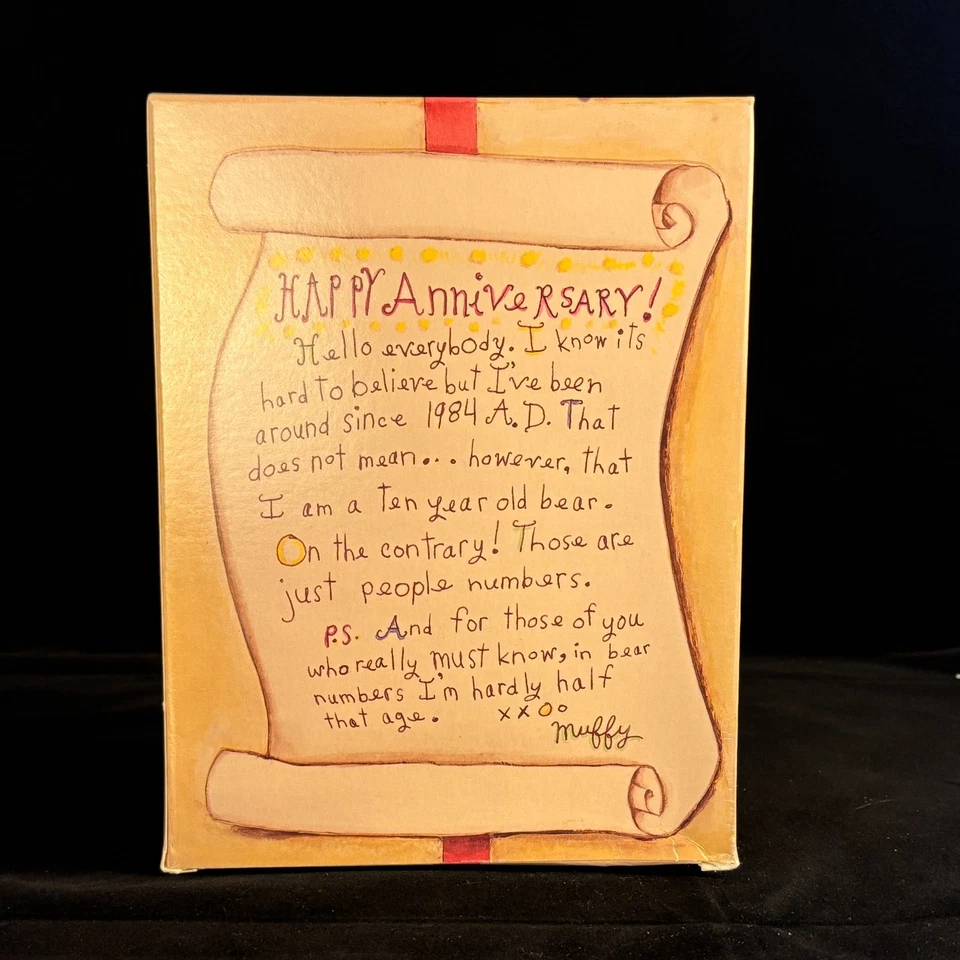 HAPPY AnniVeRSARY!
Hello everybody. I know its
hard to believe but I've been
around since 1984 A.D. That
does not mean... however, that
I am a ten year old bear.
On the contrary! Those are
just people numbers.
P.S. And for those of you
who really must know, in bear
numbers I'm hardly half
that age. xxOo
Muffy